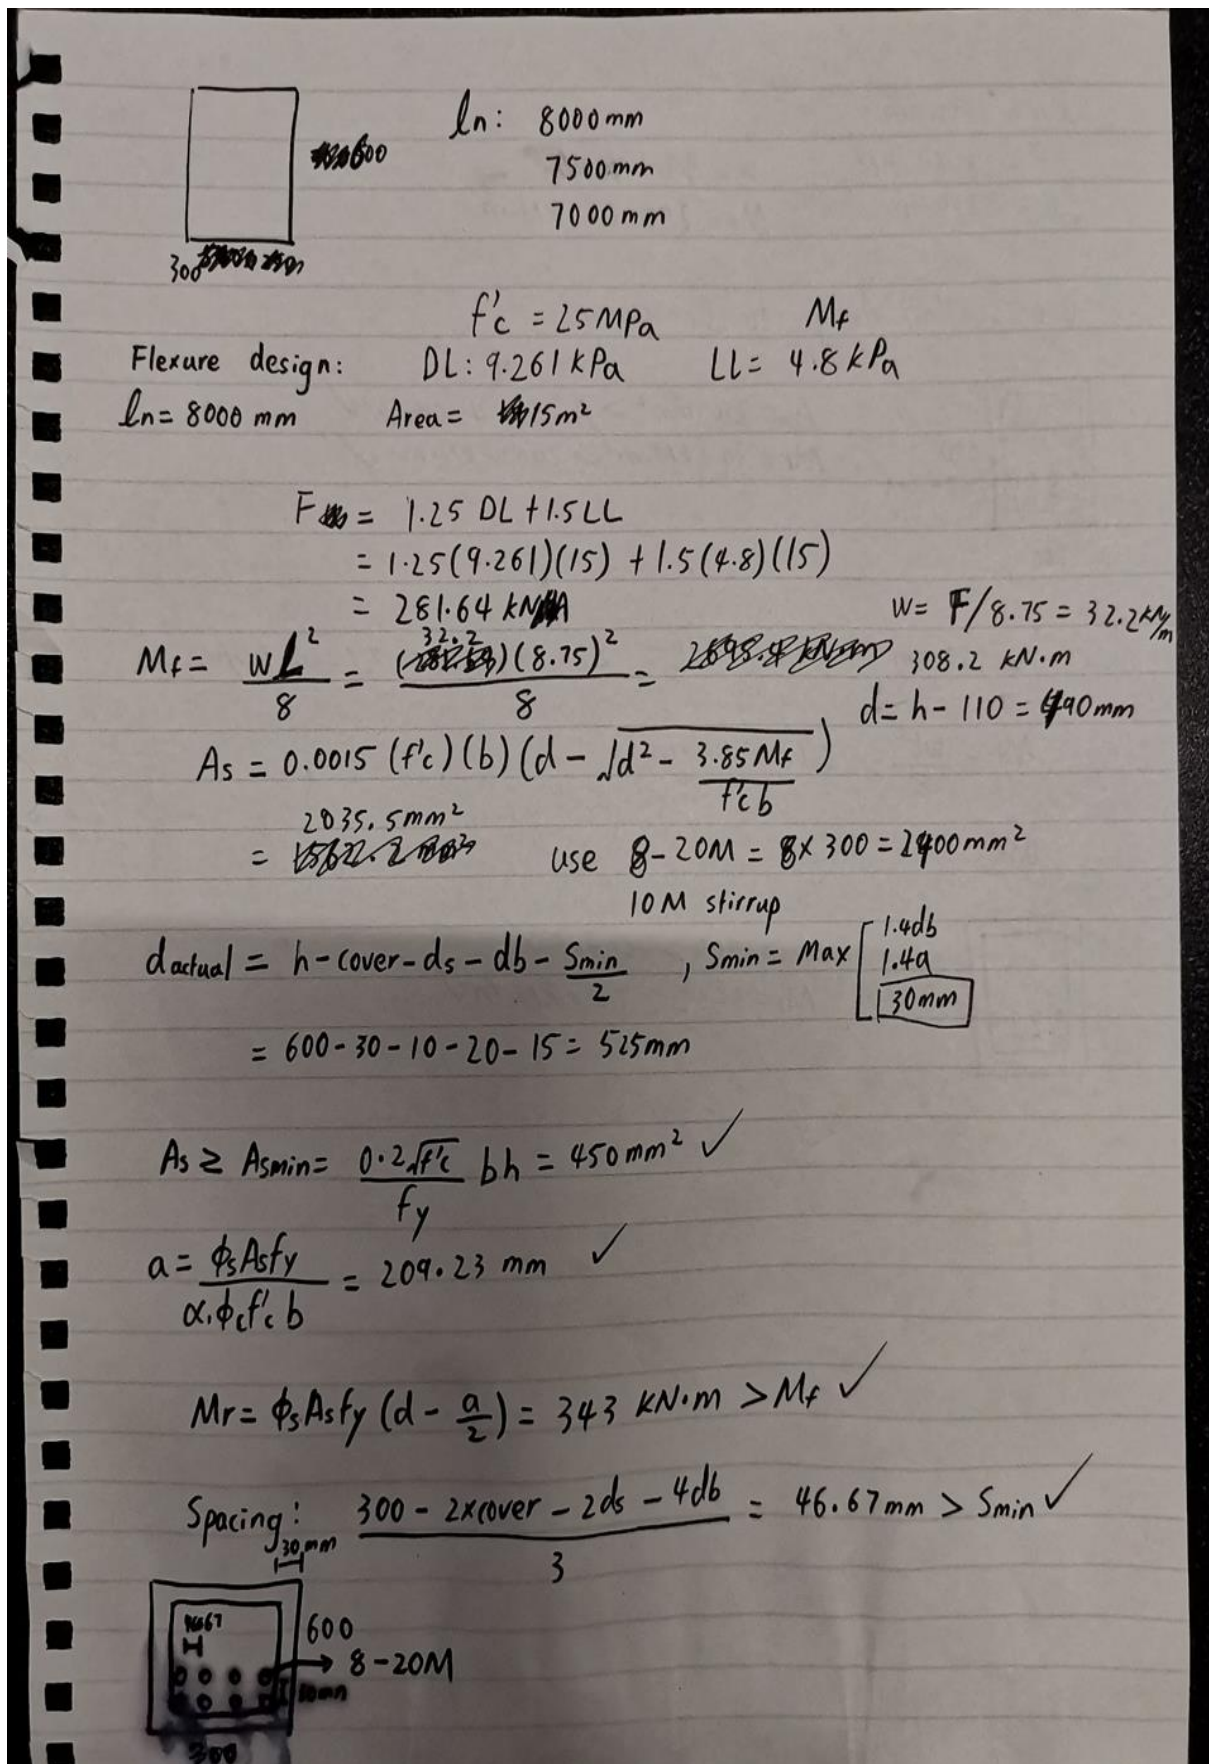 600
300
ln: 8000mm
7500mm
7000mm
f'c = 25MPa Mf
Flexure design: DL: 9.261 kPa LL= 4.8 kPa
ln= 8000 mm Area= 15m²
F = 1.25 DL + 1.5LL
= 1.25(9.261)(15) + 1.5(4.8)(15)
= 281.64 kN
w= F/8.75 = 32.2kN/m
Mf= wL²/8 = (32.2)(8.75)²/8 = 308.2 kN·m
d= h- 110 = 490mm
As = 0.0015 (f'c)(b)(d - √(d² - 3.85Mf/f'cb))
= 2035.5mm² use 8-20M = 8x 300 = 2400mm²
10M stirrup
dactual = h-cover-ds-db-Smin/2 , Smin= Max [1.4db
1.4a
30mm
= 600-30-10-20-15= 525mm
As ≥ Asmin= 0.2√f'c/fy bh = 450mm² ✓
a= ϕsAsfy/α1ϕcf'c b = 209.23 mm ✓
Mr= ϕsAsfy (d - a/2) = 343 kN·m > Mf ✓
Spacing: 300 - 2xcover - 2ds - 4db/3 = 46.67mm > Smin ✓
30mm
600
8-20M
300